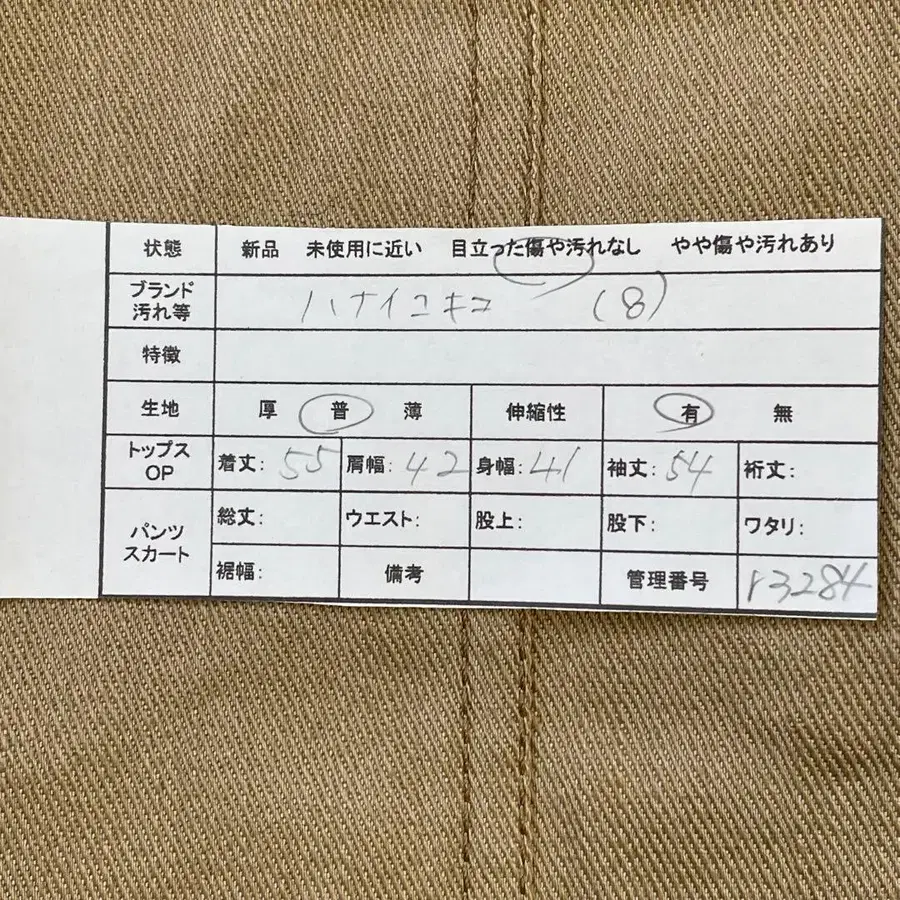 状態 新品 未使用に近い 目立った傷や汚れなし やや傷や汚れあり
ブランド
汚れ等 ハナイユキコ (8)
特徴
生地 厚 普 薄 伸縮性 有 無
トップス
OP 着丈: 55 肩幅: 42 身幅: 41 袖丈: 54 裄丈:
パンツ
スカート 総丈: ウエスト: 股上: 股下: ワタリ:
裾幅: 備考 管理番号 r3284